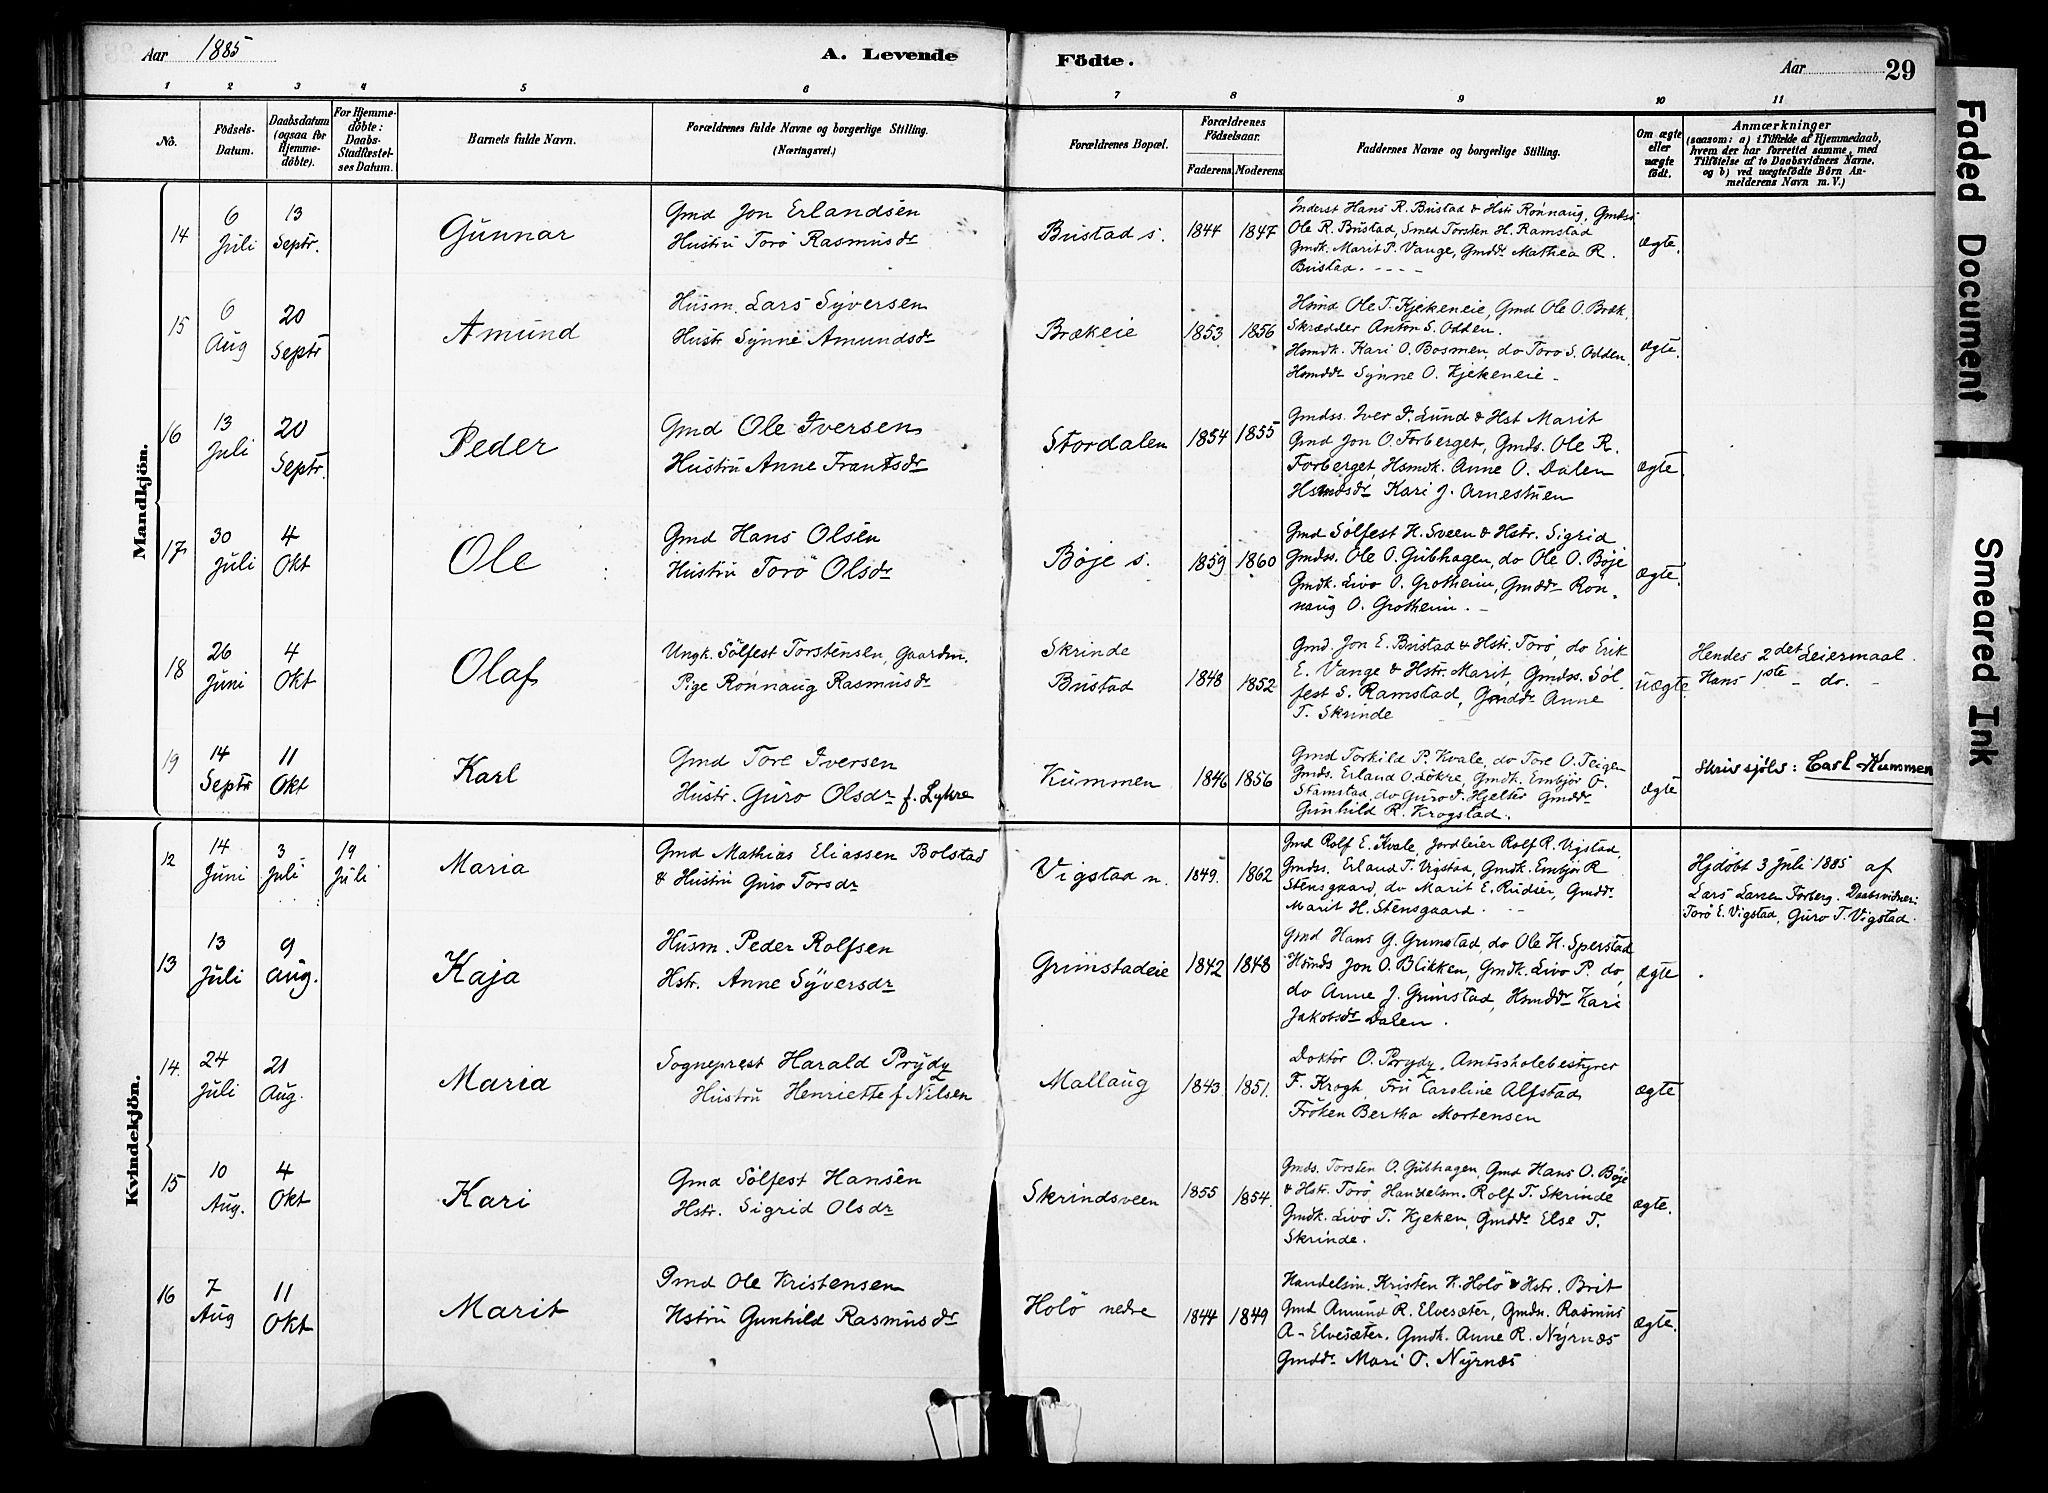 Aar 1885
A. Levende Födte.
Aar 29
1 2 3 4 5 6 7 8 9 10 11
No.
Födsels-Datum.
Daabsdatum (ogsaa for Hjemmedöbte).
For Hjemmedöbte: Daabs-Stadfæstelses Datum.
Barnets fulde Navn.
Forældrenes fulde Navne og borgerlige Stilling. (Næringsvei.)
Forældrenes Bopæl.
Forældrenes Födselsaar.
Faderens. Moderens.
Faddernes Navne og borgerlige Stilling.
Om ægte eller uægte födt.
Anmærkninger
(saasom: a) i Tilfælde af Hjemmedaab,
hvem der har forrettet samme, med
Tilföielse af to Daabsvidners Navne,
og b) ved uægtefödte Börn An-
melderens Navn m. V.)
Mandkjön.
14
6 Juli
13 Septr.
Gunnar
Gmd Jon Erlandsen
Hustru Torö Rasmusdr
Bustad s.
1844 1847
Inderst Hans R. Bustad & Hstr Rönnaug, Gmds.
Ole R. Bustad, Smed Torsten H. Ramstad
Gmdk. Marit P. Vange, Gmdd Mathea R.
Bustad.
ægte.
15
6 Aug
20 Septr
Amund
Husm. Lars Syversen
Hustr Synne Amundsdr
Brækeie
1853 1856
Hsmd Ole T. Kjekeneie, Gmd Ole O. Bræk,
Skrædder Anton S. Odden.
Hsmdk. Kari O. Bosmen, do Toro S. Odden
Hsmddr Synne O. Kjekeneie
ægte.
16
13 Juli
20 Septr.
Peder
Gmd Ole Iversen
Hustru Anne Frantsdr
Stordalen
1854 1855
Gmdss. Iver I. Lund & Hst Marit
Gmd Jon O. Forberget, Gmds. Ole R.
Forberget, Hsmdk. Anne O. Dalen
Hsmdsdr Kari J. Arnestuen
ægte.
17
30 Juli
4 Okt
Ole
Gmd Hans Olsen
Hustru Torö Olsdr
Bøje s.
1859 1860
Gmd Sölfest H. Sveen & Hstr. Sigrid
Gmdss. Ole O. Gubhagen, do Ole O. Böje
Gmdk. Livo O. Grotheim, Gmddr Rön-
naug O. Grotheim.
ægte.
18
26 Juni
4 Okt
Olaf
Ungk. Sölfest Torstensen, Gaardm.
Pige Rönnaug Rasmusdr
Skrinde
Bustad
1848 1852
Gmd. Jon E. Bustad & Hstr. Torö, do Erik
E. Vange & Hstr. Marit, Gmdss. Söl-
fest S. Ramstad, Gmddr Anne
T. Skrinde
uægte
Hendes 2det Leiermaal.
Hans 1ste - do. -
19
14 Septr
11 Okt
Karl
Gmd Tore Iversen
Hustr. Guro Olsdr f. Lykre
Kummen
1846 1856
Gmd Torkild P. Kvale, do Tore O. Teigen
Gmds. Erland O. Lökre, Gmdk. Embjör O.
Stamstad, do Guro I. Hjelter Gmddr
Gunhild R. Krogstad.
ægte
Skriv sjölv: Carl Kummen
Kvindekjön.
12
14 Juni
3 Juli
19 Juli
Maria
Gmd Mathias Eliassen Bolstad
& Hustru Guro Torsdr
Vigstad n.
1849. 1862
Gmd Rolf E. Kvale, Jordleier Rolf R. Vigstad,
Gmdss. Erland T. Vigstad, Gmdk. Embjör R
Stensgaard, do Marit E. Rudser, Gmddr.
Marit H. Stensgaard.
Hjdöbt 3 Juli 1885 af
Lars Larsen Forberg. Daabsvidner:
Torö E. Vigstad, Guro T. Vigstad.
13
13 Juli
9 Aug.
Kaja
Husm. Peder Rolfsen
Hstr. Anne Syversdr
Grimstadeie
1842 1848
Gmd Hans G. Grimstad, do Ole H. Sperstad
Hsmds Jon O. Blikken, Gmdk. Livo P. do,
do Anne J. Grimstad, Hsmddr Kari
Jakobsdr Dalen.
ægte
14.
24 Juli
21 Aug.
Maria
Sogneprest Harald Prydz
Hustru Henriette f Nilsen
Mallaug
1843 1851.
Doktor O. Prydz, Amtsskolebestyrer
F. Krogh, Fru Caroline Alfstad
Fröken Bertha Mortensen
ægte
15
10 Aug.
4 Okt
Kari
Gmd Sölfest Hansen
Hstr. Sigrid Olsdr
Skrindsveen
1855 1854.
Gmds. Torsten O. Gubhagen, Gmd Hans O. Böje
& Hstr. Torö, Handelsm. Rolf T. Skrinde
Gmdk. Livö T. Kjeken, Gmddr Else T.
Skrinde.
ægte.
16
7 Aug
11 Okt
Marit
Gmd Ole Kristensen
Hstru Gunhild Rasmusdr
Holö nedre
1844 1849
Handelsm. Kristen K. Holö & Hstr. Brit
Gmd Amund R. Elvesæter, Gmdss. Rasmus
A. Elvesæter. Gmdk. Anne R. Nyrnæs
Gmddr Mari O. Nyrnæs
ægte.
Faded Document
Smeared Ink